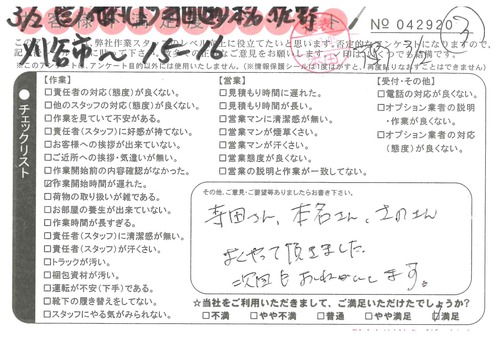 3/2
刈谷市
15-16
No 042920
3
弊社作業スタッフのレベル向上に役立てたいと思います。否定的なアンケートになりますので、
※このアンケートは、アンケート目的以外には使用いたしません。(※情報保護シールは1度はがすと、再度貼りなおすことはできません)
チェックリスト
【作業】
□責任者の対応(態度)が良くない。
□他のスタッフの対応(態度)が良くない。
□作業を見ていて不安がある。
□責任者(スタッフ)に好感が持てない。
□お客様への挨拶が出来ていない。
□ご近所への挨拶・気遣いが無い。
□作業開始前の内容確認がなかった。
☑作業開始時間が遅れた。
□荷物の取り扱いが雑である。
□お部屋の養生が出来ていない。
□作業時間が長すぎる。
□責任者(スタッフ)に清潔感が無い。
□責任者(スタッフ)が汗くさい。
□トラックが汚い。
□梱包資材が汚い。
□運転が不安(下手)である。
□靴下の履き替えをしてない。
□スタッフにやる気がみられない。
【営業】
□見積もり時間に遅れた。
□見積もり時間が長い。
□営業マンに清潔感が無い。
□営業マンが煙草くさい。
□営業マンが汗くさい。
□営業態度が良くない。
□営業の説明と作業が一致してない。
【受付・その他】
□電話の対応が良くない。
□オプション業者の説明
・作業が良くない。
□オプション業者の対応
(態度)が良くない。
その他、ご意見・ご要望等ありましたらお書き下さい。
寺田さん、本名さん、さのさん
よくやって頂きました
次回もおねがいします。
☆当社をご利用いただきまして、ご満足いただけたでしょうか?
□不満 □やや不満 □普通 □やや満足 □満足